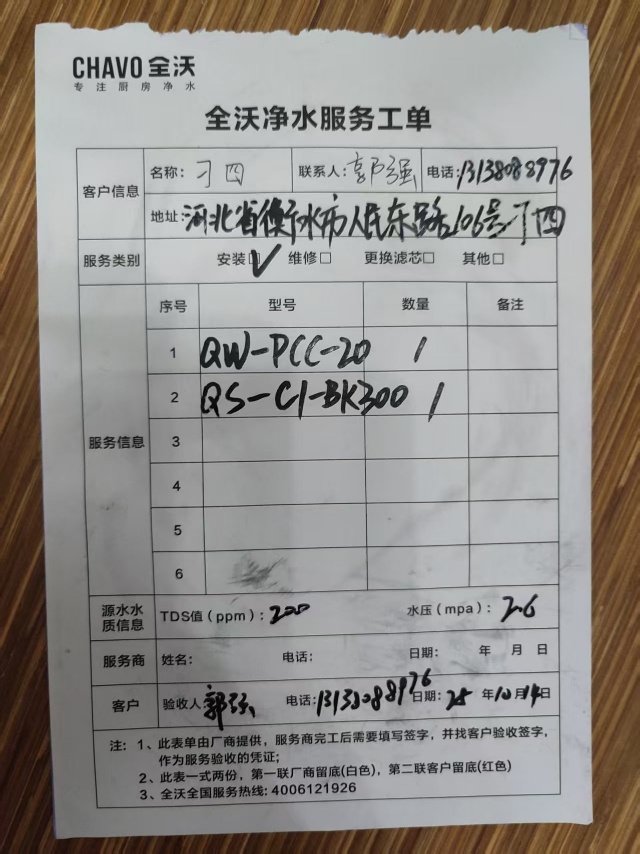 CHAVO 全沃
专注厨房净水
全沃净水服务工单
客户信息 名称: 刁四 联系人: 郭强 电话: 13138088976
地址: 河北省衡水市人民东路106号刁四
服务类别 安装☑ 维修□ 更换滤芯□ 其他□
服务信息 序号 型号 数量 备注
1 QW-PCC-20 1
2 QS-C1-BK300 1
3
4
5
6
源水水质信息 TDS值(ppm): 200 水压(mpa): 2.6
服务商 姓名: 电话: 日期: 年 月 日
客户 验收人 郭强 电话: 13138088976 日期: 25年10月14日
注: 1、此表单由厂商提供，服务商完工后需要填写签字，并找客户验收签字，
作为服务验收的凭证;
2、此表一式两份，第一联厂商留底(白色)，第二联客户留底(红色)
3、全沃全国服务热线: 4006121926